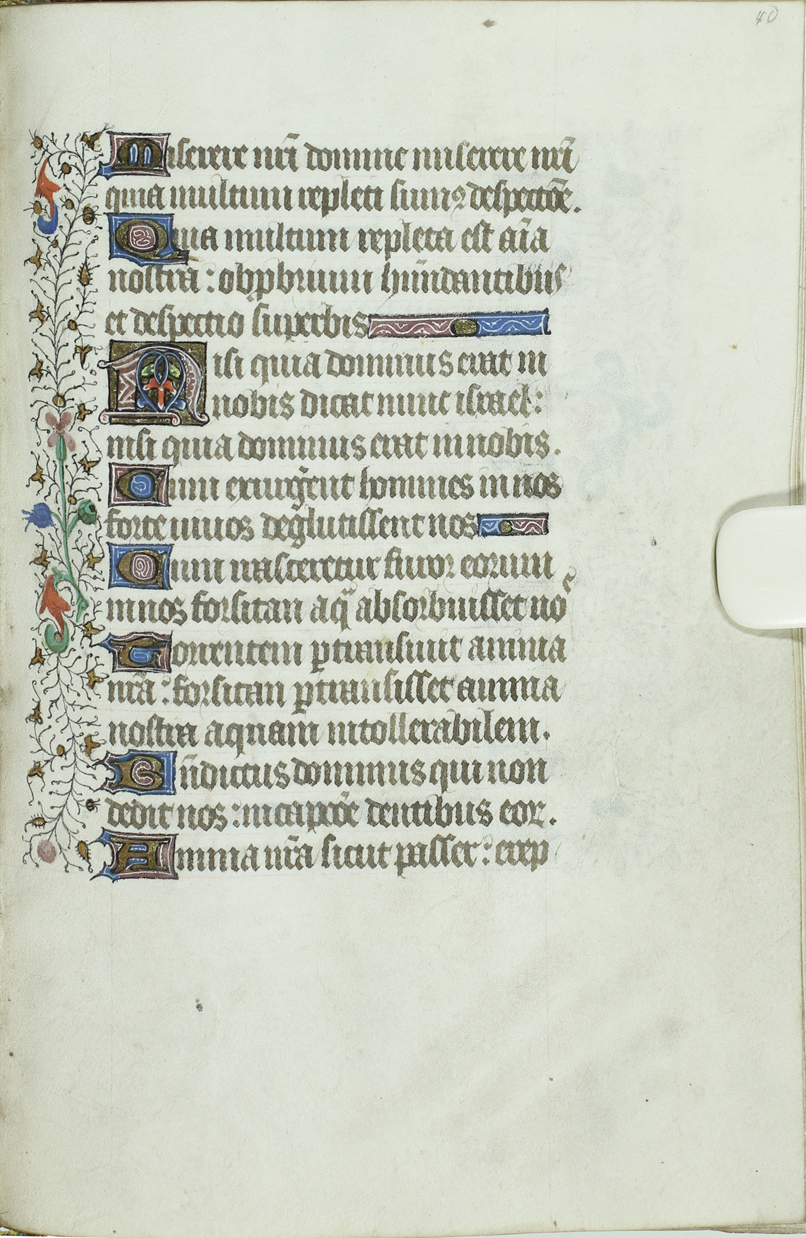 40
Miserere nr̄i domine miserere nr̄i
quia multum repleti sumꝰ despectōe.
Quia multum repleta est aīa
nostra : obp̱briuum hūndantibus
et despectio superbis
Nisi quia dominus erat in
nobis dicat nunc israel :
nisi quia dominus erat in nobis.
Cum exiurgēent homines in nos
forte uiuos deglutissent nos
Cum nasceretur furor eorum
in nos forsitan aqᷓ absorbuisset noˢ
Torrentem ꝑtransiuit anima
nr̄a : forsitan ꝑtransisset anima
nostra aquam intollerabilem.
Bn̄dictus dominus qui non
dedit nos : in capcōe dentibus eoꝝ.
Anima nr̄a sicut passer : erep